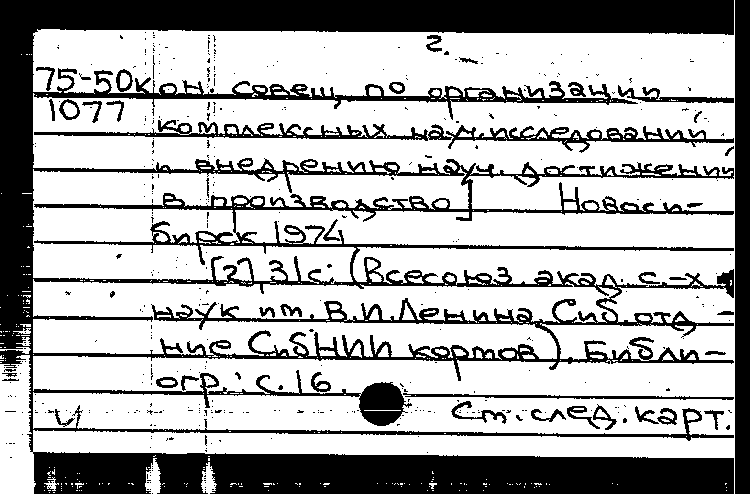 2.
75-50кон. совещ. по организации
1077 комплексных науч. исследований
и внедрению науч. достижений
в производство] Новоси-
бирск, 1974
[2], 31 с. (Всесоюз. акад. с.-х
наук им. В.И. Ленина. Сиб. отд-
ние СибНИИ кормов). Библи-
огр.: с. 16.
См. след. карт.